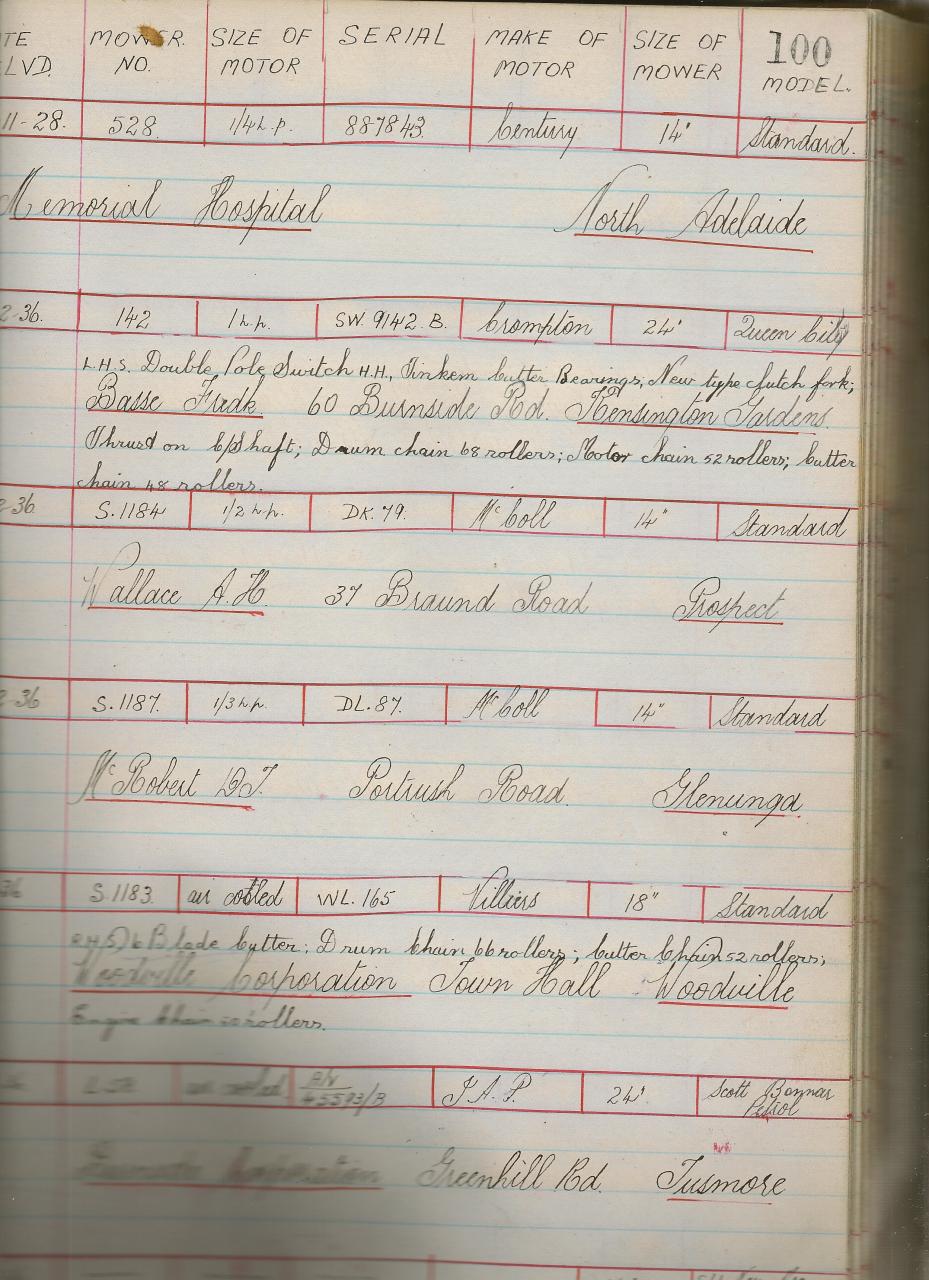 TE MOWER SIZE OF SERIAL MAKE OF SIZE OF 100
LVD. NO. MOTOR MOTOR MOWER MODEL.
11-28. 528 1/4 h.p. 887843 Century 14" Standard.
Memorial Hospital North Adelaide
2-36. 142 1 h.p. SW. 9142. B. Crompton 24" Queen City
L.H.S. Double Pole Switch H.H., Tinkem Cutter Bearings; New type clutch fork;
Basse Fredk. 60 Burnside Rd. Kensington Gardens.
Thrust on C/Shaft; Drum chain 68 rollers; Motor chain 52 rollers; Cutter
chain 48 rollers.
2-36 S.1184 1/2 h.p. DK. 79. McColl 14" Standard
Wallace A.H. 37 Braund Road Prospect
2-36 S.1187. 1/3 h.p. DL. 87. McColl 14" Standard
McRobert D.J. Portrush Road. Glenunga
36 S.1183. air cooled WL. 165 Villiers 18" Standard
R.H.S) 6 Blade Cutter; Drum Chain 66 rollers; Cutter Chain 52 rollers;
Woodville Corporation Town Hall Woodville
Engine Chain rollers.
air cooled 45593/B J.A.P. 24" Scott Bonnar
Petrol
Corporation Greenhill Rd. Tusmore